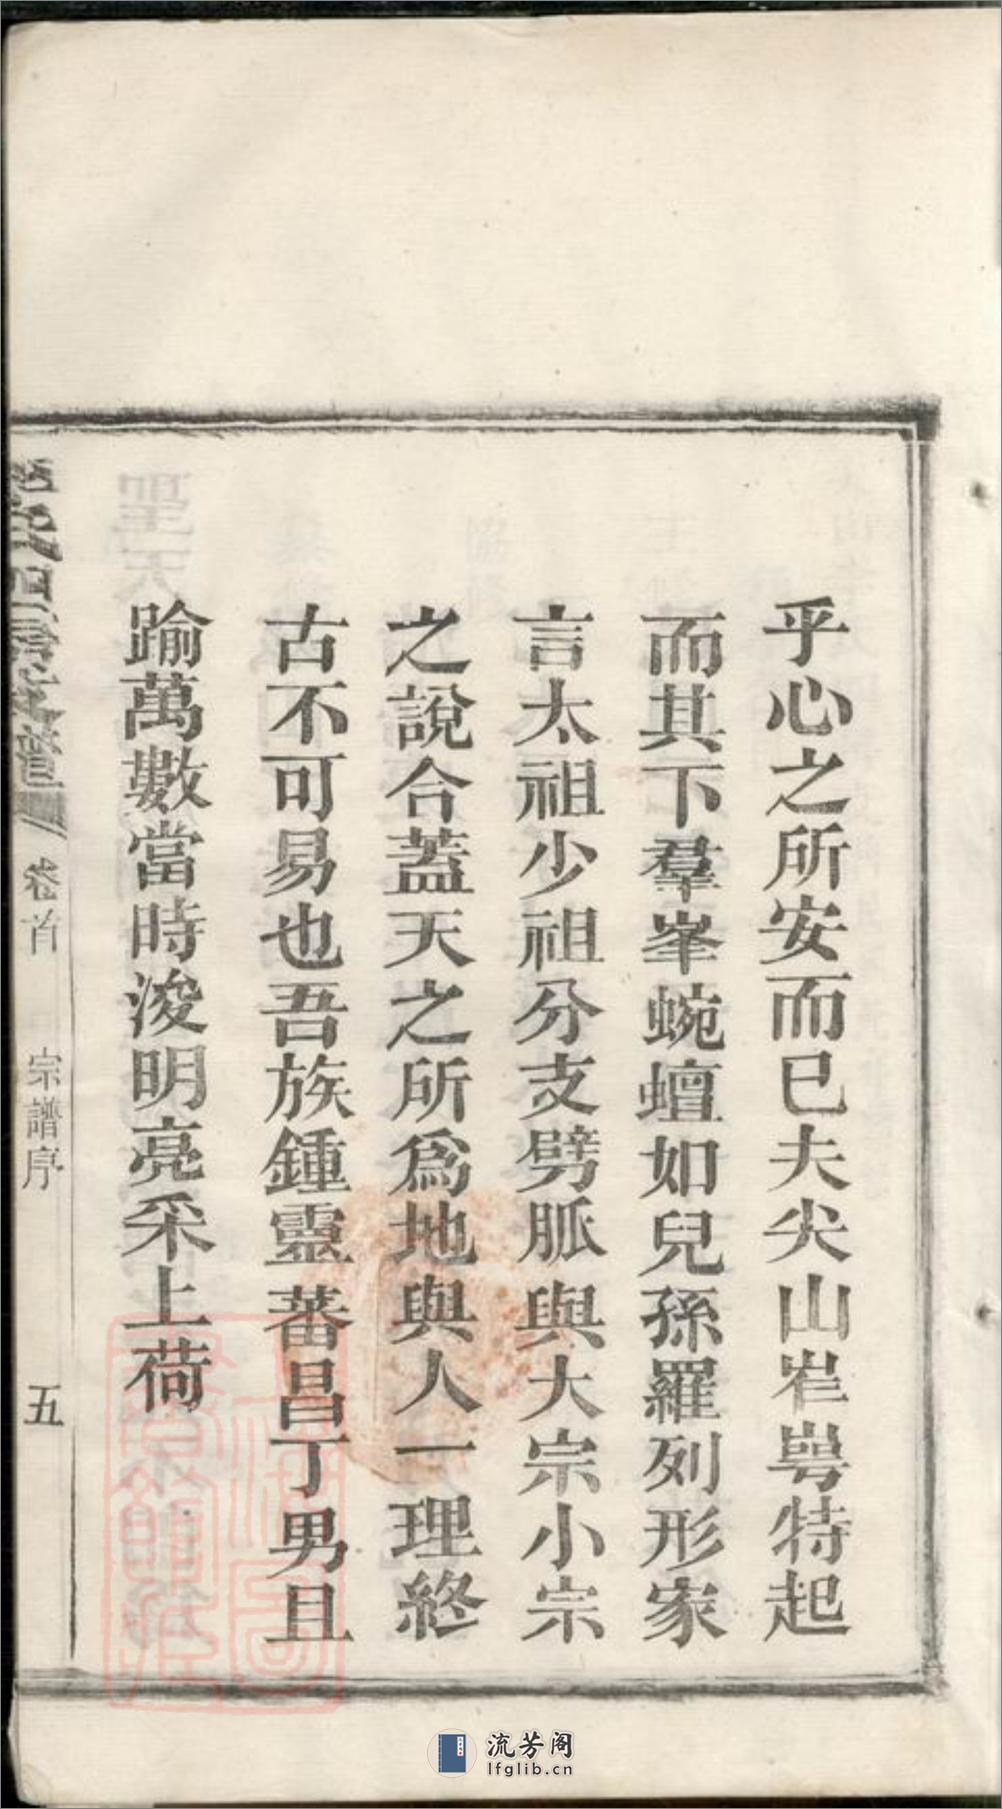 乎心之所安而已夫尖山岝崿特起
而其下羣峯蜿蟺如兒孫羅列形家
言太祖少祖分支劈脈與大宗小宗
之說合蓋天之所爲地與人一理終
古不可易也吾族鍾靈蕃昌丁男且
踰萬數當時浚明亮采上荷
卷首
宗譜序
五
流芳阁
lfglib.cn